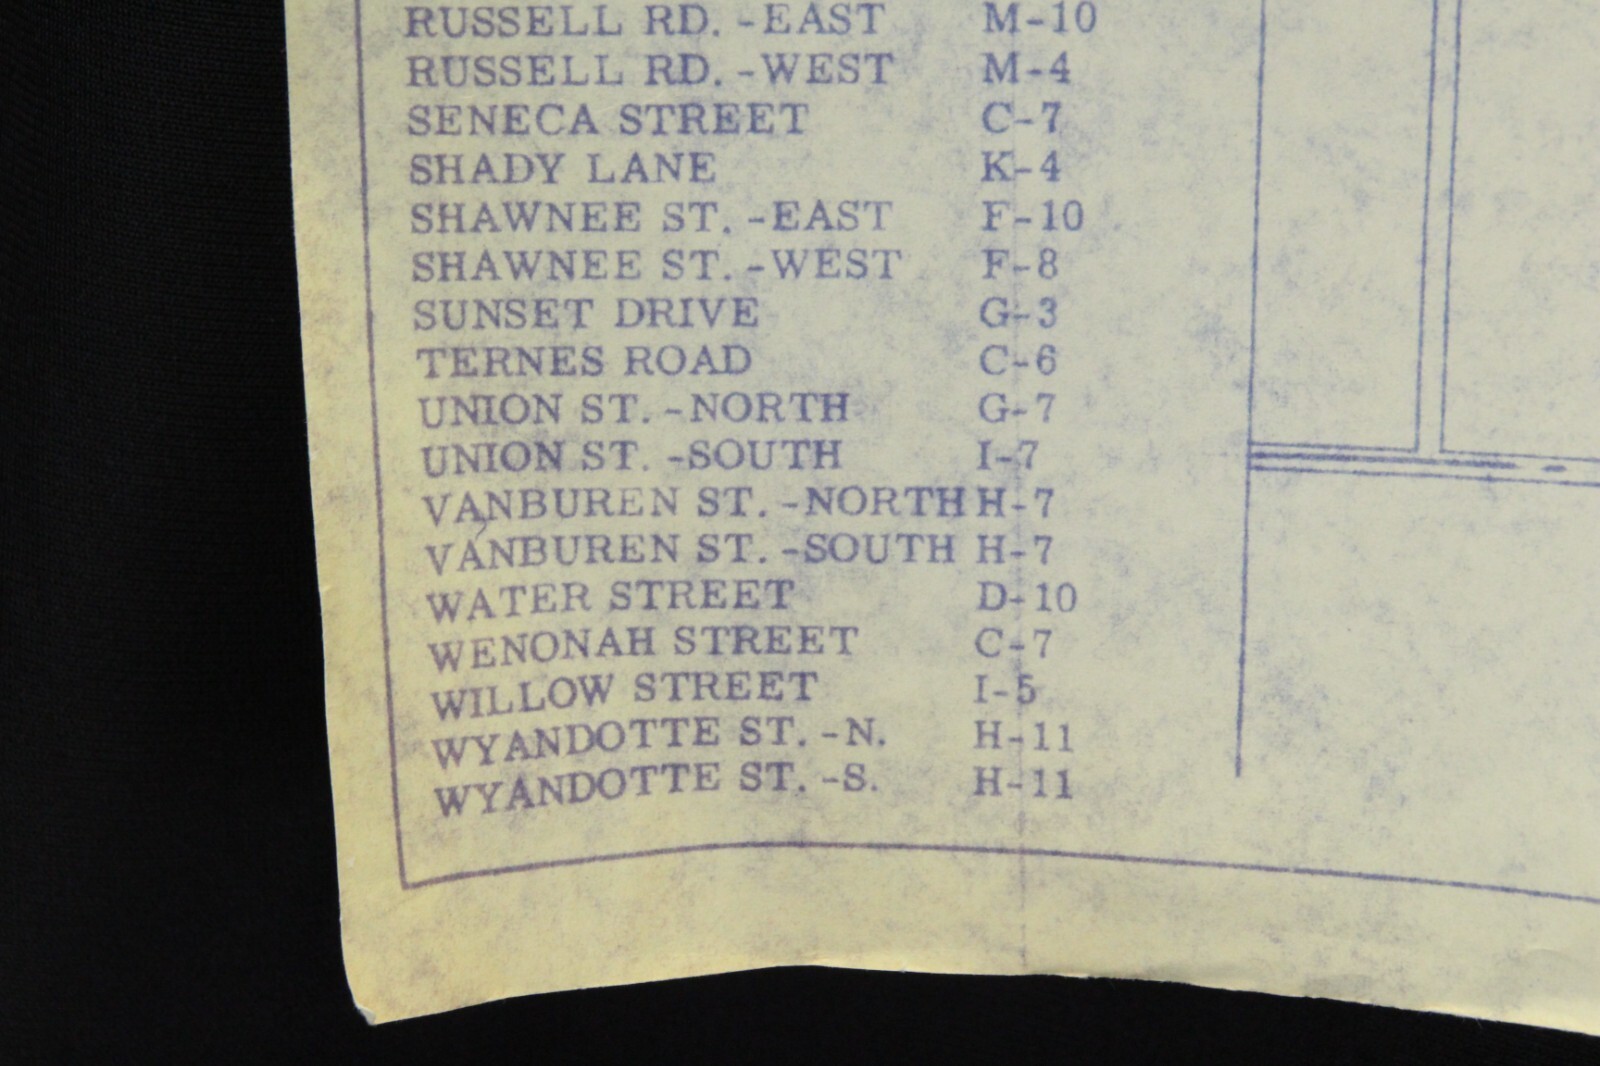 RUSSELL RD. -EAST M-10
RUSSELL RD. -WEST M-4
SENECA STREET C-7
SHADY LANE K-4
SHAWNEE ST. -EAST F-10
SHAWNEE ST. -WEST F-8
SUNSET DRIVE G-3
TERNES ROAD C-6
UNION ST. -NORTH G-7
UNION ST. -SOUTH I-7
VANBUREN ST. -NORTH H-7
VANBUREN ST. -SOUTH H-7
WATER STREET D-10
WENONAH STREET C-7
WILLOW STREET I-5
WYANDOTTE ST. -N. H-11
WYANDOTTE ST. -S. H-11